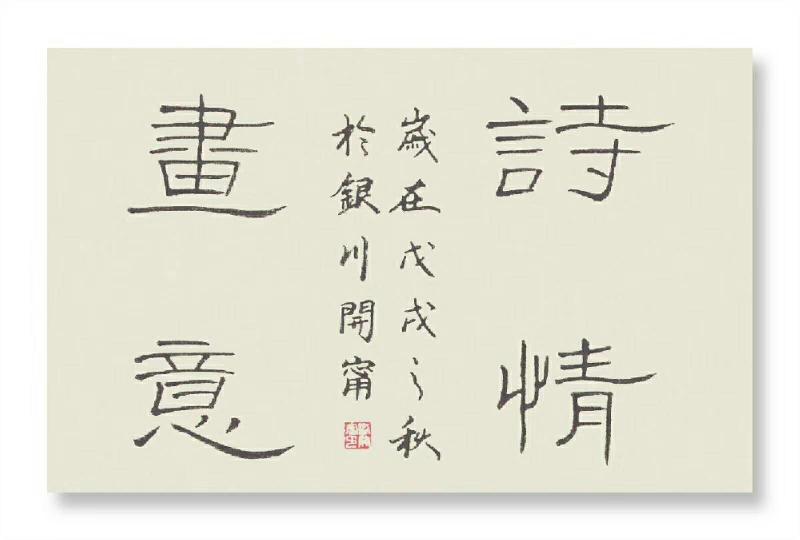 詩情
歲在戊戌之秋
於銀川開甯
畫意